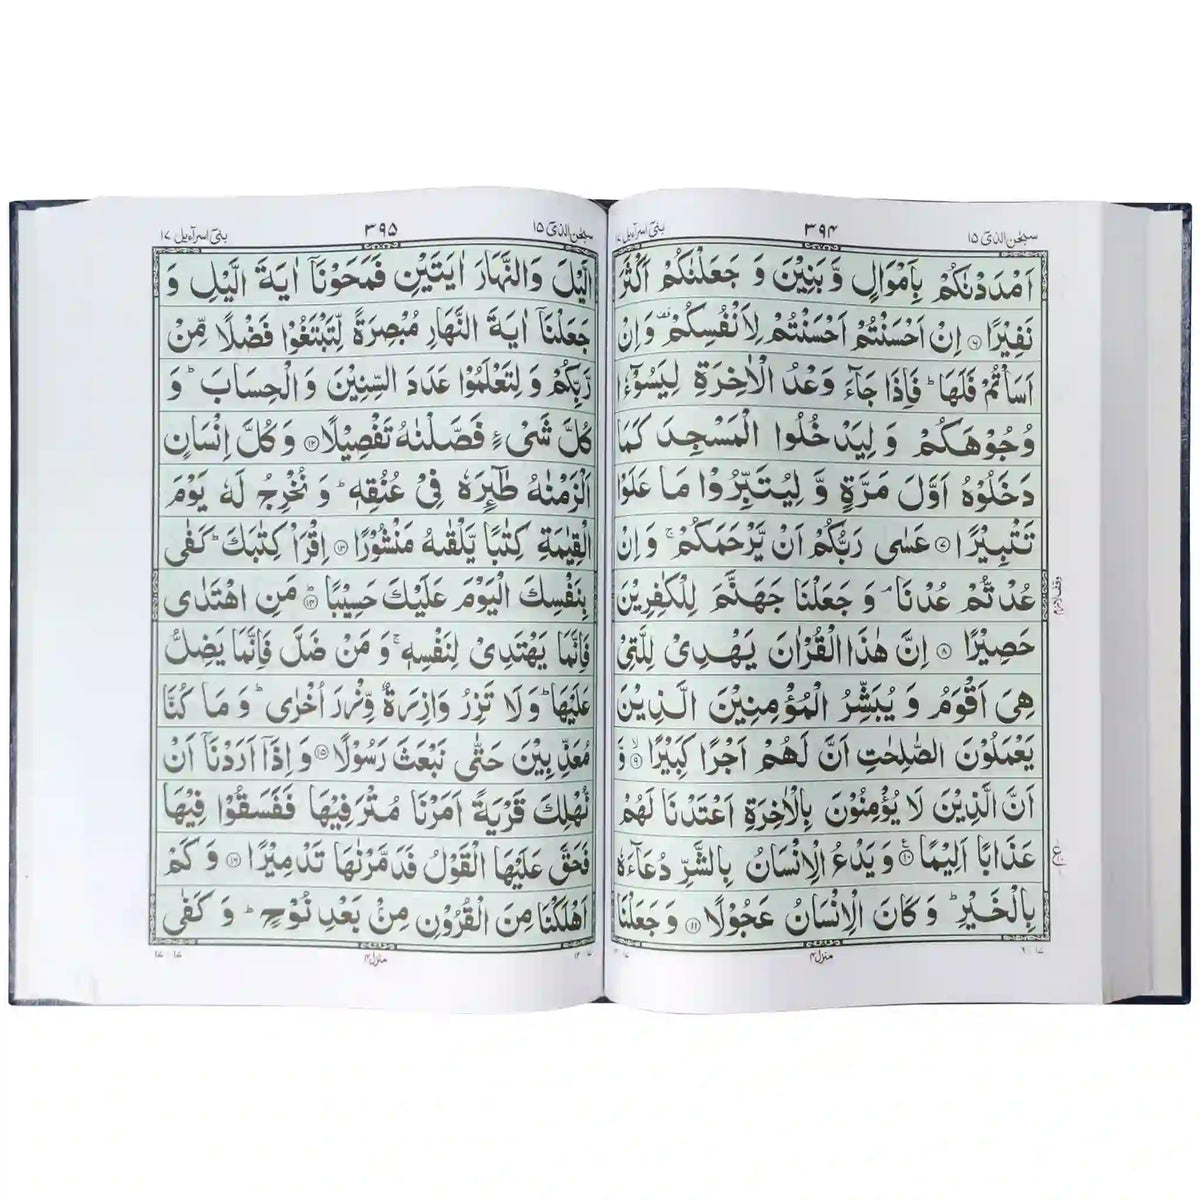 سبحٰن الذیٓ ۱۵
۳۹۴
بنیٓ اسرآءیل ۱۷
اَمْدَدْنٰكُمْ بِاَمْوَالٍ وَّ بَنِیْنَ وَ جَعَلْنٰكُمْ اَكْثَرَ
نَفِیْرًا ۶ اِنْ اَحْسَنْتُمْ اَحْسَنْتُمْ لِاَنْفُسِكُمْ ۫ وَ اِنْ
اَسَاْتُمْ فَلَهَا ؕ فَاِذَا جَآءَ وَعْدُ الْاٰخِرَةِ لِیَسُوْٓءٗا
وُجُوْهَكُمْ وَ لِیَدْخُلُوا الْمَسْجِدَ كَمَا
دَخَلُوْهُ اَوَّلَ مَرَّةٍ وَّ لِیُتَبِّرُوْا مَا عَلَوْا
تَتْبِیْرًا ۷ عَسٰی رَبُّكُمْ اَنْ یَّرْحَمَكُمْ ۚ وَ اِنْ
عُدْتُّمْ عُدْنَا ۘ وَ جَعَلْنَا جَهَنَّمَ لِلْكٰفِرِیْنَ
حَصِیْرًا ۸ اِنَّ هٰذَا الْقُرْاٰنَ یَهْدِیْ لِلَّتِیْ
هِیَ اَقْوَمُ وَ یُبَشِّرُ الْمُؤْمِنِیْنَ الَّذِیْنَ
یَعْمَلُوْنَ الصّٰلِحٰتِ اَنَّ لَهُمْ اَجْرًا كَبِیْرًا ۙ۹ وَّ
اَنَّ الَّذِیْنَ لَا یُؤْمِنُوْنَ بِالْاٰخِرَةِ اَعْتَدْنَا لَهُمْ
عَذَابًا اَلِیْمًا ۱۰ وَ یَدْعُ الْاِنْسَانُ بِالشَّرِّ دُعَآءَهٗ
بِالْخَیْرِ ؕ وَ كَانَ الْاِنْسَانُ عَجُوْلًا ۱۱ وَ جَعَلْنَا
وقف لازم
ع
منزل ۴
۱۷ : ۶
سبحٰن الذیٓ ۱۵
۳۹۵
بنیٓ اسرآءیل ۱۷
الَّیْلَ وَ النَّهَارَ اٰیَتَیْنِ فَمَحَوْنَاۤ اٰیَةَ الَّیْلِ وَ
جَعَلْنَاۤ اٰیَةَ النَّهَارِ مُبْصِرَةً لِّتَبْتَغُوْا فَضْلًا مِّنْ
رَّبِّكُمْ وَ لِتَعْلَمُوْا عَدَدَ السِّنِیْنَ وَ الْحِسَابَ ؕ وَ
كُلَّ شَیْءٍ فَصَّلْنٰهُ تَفْصِیْلًا ۱۲ وَ كُلَّ اِنْسَانٍ
اَلْزَمْنٰهُ طٰٓئِرَهٗ فِیْ عُنُقِهٖ ؕ وَ نُخْرِجُ لَهٗ یَوْمَ
الْقِیٰمَةِ كِتٰبًا یَّلْقٰىهُ مَنْشُوْرًا ۱۳ اِقْرَاْ كِتٰبَكَ ؕ كَفٰی
بِنَفْسِكَ الْیَوْمَ عَلَیْكَ حَسِیْبًا ؕ۱۴ مَنِ اهْتَدٰی
فَاِنَّمَا یَهْتَدِیْ لِنَفْسِهٖ ۚ وَ مَنْ ضَلَّ فَاِنَّمَا یَضِلُّ
عَلَیْهَا ؕ وَ لَا تَزِرُ وَازِرَةٌ وِّزْرَ اُخْرٰی ؕ وَ مَا كُنَّا
مُعَذِّبِیْنَ حَتّٰی نَبْعَثَ رَسُوْلًا ۱۵ وَ اِذَاۤ اَرَدْنَاۤ اَنْ
نُّهْلِكَ قَرْیَةً اَمَرْنَا مُتْرَفِیْهَا فَفَسَقُوْا فِیْهَا
فَحَقَّ عَلَیْهَا الْقَوْلُ فَدَمَّرْنٰهَا تَدْمِیْرًا ۱۶ وَ كَمْ
اَهْلَكْنَا مِنَ الْقُرُوْنِ مِنْۢ بَعْدِ نُوْحٍ ؕ وَ كَفٰی
۱۷ : ۱۲
منزل ۴
۱۷ : ۱۷